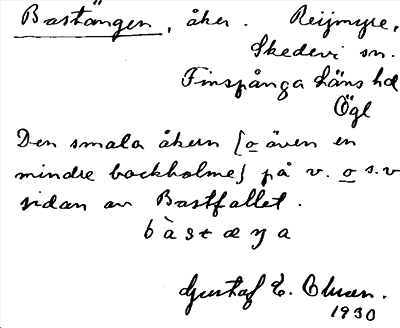 Bastängen, åker. Reijmyre,
Skedevi sn.
Finspånga läns hd
Ögl
Den smala åkern [o även en
mindre backholme] på v. o s.v
sidan av Bastfallet.
bàstæŋa
Gustaf E.
1930